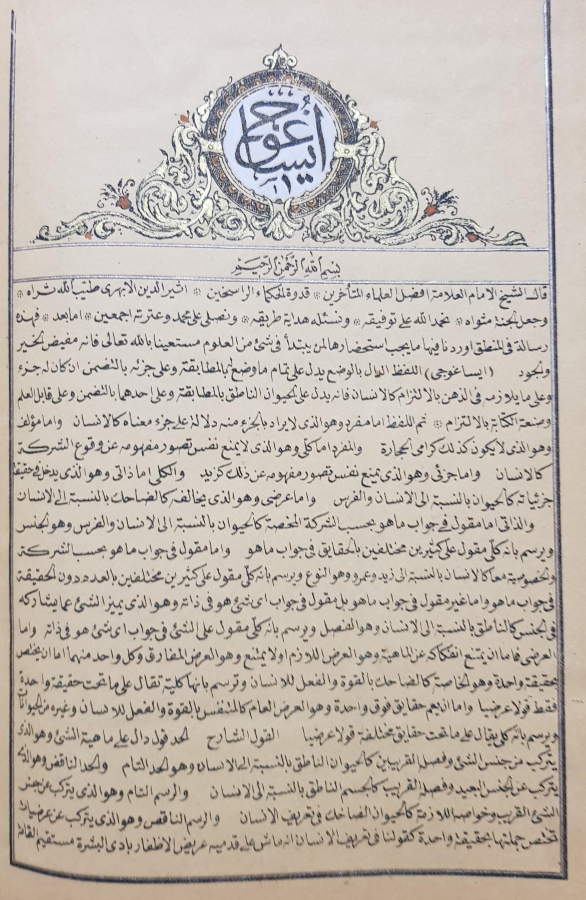 ايساغوجى
بسم الله الرحمن الرحيم
قال الشيخ الامام العلامة افضل العلماء المتأخرين * قدوة الحكماء الراسخين * اثير الدين الابهرى طيب الله ثراه *
وجعل الجنة مثواه * نحمد الله على توفيقه * ونسئله هداية طريقه * ونصلى على محمد وعترته اجمعين * اما بعد * فهذه
رسالة فى المنطق اوردنا فيها ما يجب استحضارها لمن يبتدأ فى شئ من العلوم مستعينا بالله تعالى فانه مفيض الخير
والجود (ايساغوجى) اللفظ الدال بالوضع يدل على تمام ما وضع له بالمطابقة وعلى جزئه بالتضمن ان كان له جزء
وعلى ما يلازمه فى الذهن بالالتزام كالانسان فانه يدل على الحيوان الناطق بالمطابقة وعلى احدهما بالتضمن وعلى قابل العلم
وصنعة الكتابة بالالتزام * ثم اللفظ اما مفرد وهو الذى لا يراد بالجزء منه دلالة على جزء معناه كالانسان واما مؤلف
وهو الذى لا يكون كذلك كرامى الحجارة والمفرد اما كلى وهو الذى لا يمنع نفس تصور مفهومه عن وقوع الشركة
كالانسان واما جزئى وهو الذى يمنع نفس تصور مفهومه عن ذلك كزيد والكلى اما ذاتى وهو الذى يدخل فى حقيقة
جزئياته كالحيوان بالنسبة الى الانسان والفرس واما عرضى وهو الذى يخالفه كالضاحك بالنسبة الى الانسان
والذاتى اما مقول فى جواب ما هو بحسب الشركة المحضة كالحيوان بالنسبة الى الانسان والفرس وهو الجنس
ويرسم بانه كلى مقول على كثيرين مختلفين بالحقايق فى جواب ما هو واما مقول فى جواب ما هو بحسب الشركة
والخصوصية معا كالانسان بالنسبة الى زيد وعمرو وهو النوع ويرسم بانه كلى مقول على كثيرين مختلفين بالعدد دون الحقيقة
فى جواب ما هو واما غير مقول فى جواب ما هو بل مقول فى جواب اى شئ هو فى ذاته وهو الذى يميز الشئ عما يشاركه
فى الجنس كالناطق بالنسبة الى الانسان وهو الفصل ويرسم بانه كلى مقول على الشئ فى جواب اى شئ هو فى ذاته واما
العرضى فاما ان يمتنع انفكاكه عن الماهية وهو العرض اللازم او لا يمتنع وهو العرض المفارق وكل واحد منهما اما ان يختص
بحقيقة واحدة وهو الخاصة كالضاحك بالقوة والفعل للانسان وترسم بانها كلية تقال على ما تحت حقيقة واحدة
فقط قولا عرضيا واما ان يعم حقايق فوق واحدة وهو العرض العام كالمتنفس بالقوة والفعل للانسان وغيره من الحيوانات
ويرسم بانه كلى يقال على ما تحت حقايق مختلفة قولا عرضيا القول الشارح الحد قول دال على ماهية الشئ وهو الذى
يتركب عن جنس الشئ وفصله القريبين كالحيوان الناطق بالنسبة الى الانسان وهو الحد التام والحد الناقص وهو الذى
يتركب عن الجنس البعيد وفصله القريب كالجسم الناطق بالنسبة الى الانسان والرسم التام وهو الذى يتركب عن جنس
الشئ القريب وخواصه اللازمة كالحيوان الضاحك فى تعريف الانسان والرسم الناقص وهو الذى يتركب عن عرضيات
تختص جملتها بحقيقة واحدة كقولنا فى تعريف الانسان انه ماش على قدميه عريض الاظفار بادى البشرة مستقيم القامة